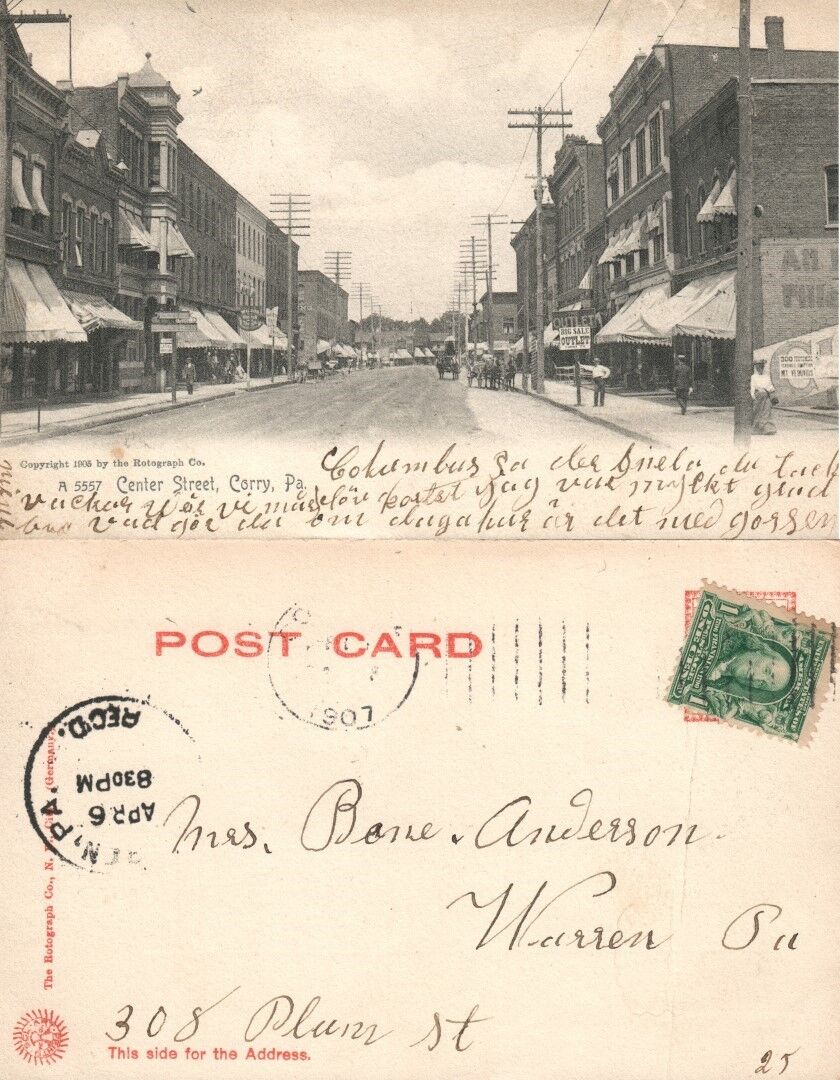 BIG SALE
OUTLET
Copyright 1905 by the Rotograph Co.
A 5557 Center Street, Corry, Pa.
Columbus Pa der du tack
vackor vi for kortet Jag var mykt glad
vad gör du om dagahar är det med gossen
POST CARD
REC'D.
8 30 PM
APR 6
N, PA.
The Rotograph Co., N. Y. City. (Germany.)
Mrs. Bone. Anderson.
Warren Pa
308 Plum st
This side for the Address.
25